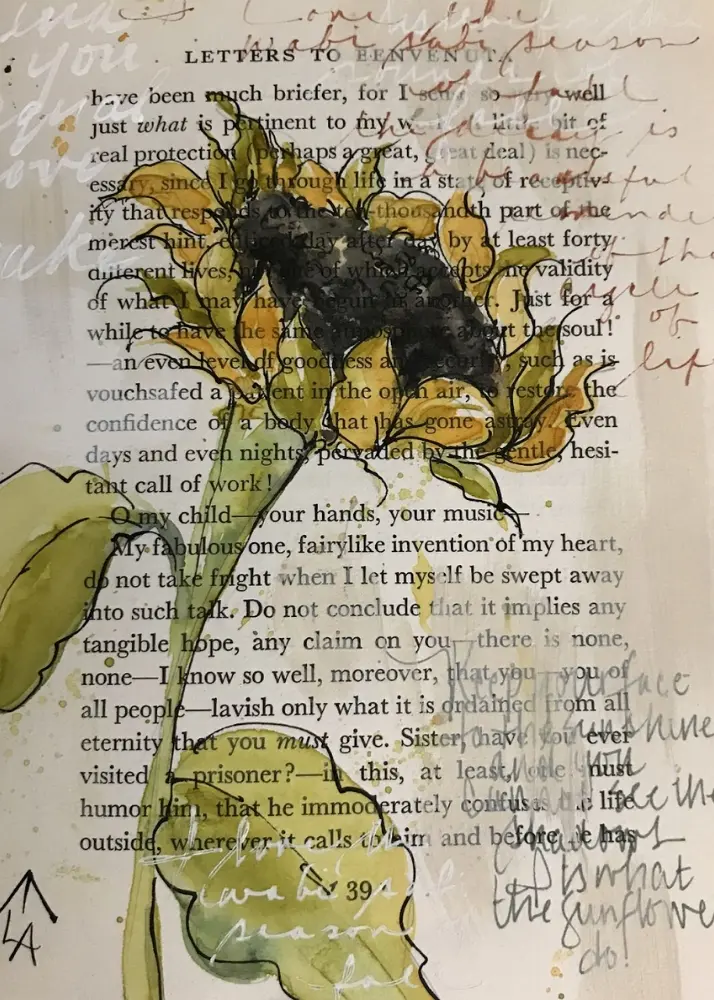 I love the
wabi sabi season
of
is
a beautiful
of the
cycle
of
life
you
love
LETTERS TO BENVENUTA
have been much briefer, for I so well
just what is pertinent to my bit of
real protection (perhaps a great, great deal) is nec-
essary, since I go through life in a state of receptiv-
ity that responds to the ten-thousandth part of the
merest hint, day after day by at least forty
different lives, one of which accepts the validity
of what I may have begun in another. Just for a
while to have the same atmosphere about the soul!
—an even level of goodness and security, such as is
vouchsafed a patient in the open air, to restore the
confidence of a body that has gone astray. Even
days and even nights, pervaded by the gentle, hesi-
tant call of work!
O my child—your hands, your music—
My fabulous one, fairylike invention of my heart,
do not take fright when I let myself be swept away
into such talk. Do not conclude that it implies any
tangible hope, any claim on you—there is none,
none—I know so well, moreover, that you—you of
all people—lavish only what it is ordained from all
eternity that you must give. Sister, have you ever
visited a prisoner?—in this, at least, one must
humor him, that he immoderately confuses the life
outside, wherever it calls to him and before he has
39
Keep your face
to the sunshine
and you
see the
shadows
Is what
the sunflowe
do!
I love the
wabi sabi
season
fal
LA